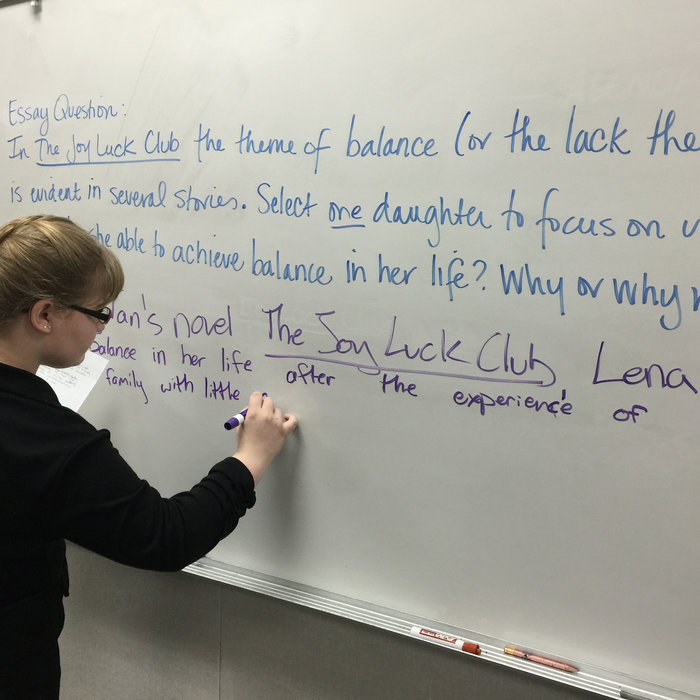 Essay Question:
In The Joy Luck Club the theme of balance (or the lack the
is evident in several stories. Select one daughter to focus on
she able to achieve balance in her life? Why or why
Tan's novel The Joy Luck Club, Lena
balance in her life after the experience of
family with little